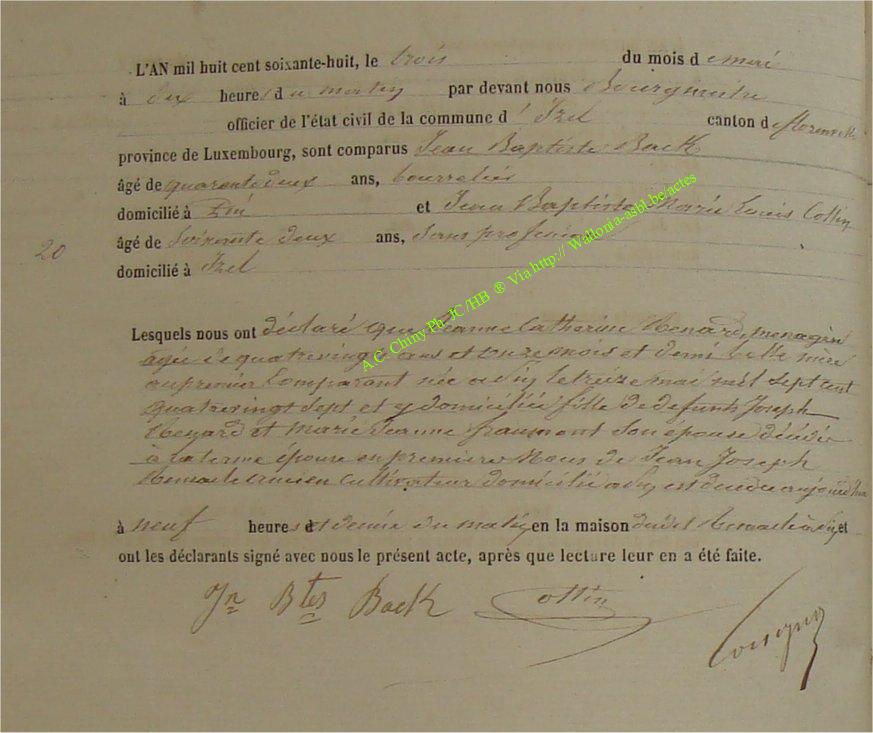 L'AN mil huit cent soixante-huit, le trois du mois de mai
à dix heures du matin par devant nous Bourgmestre
officier de l'état civil de la commune d'Izel canton de florenville
province de Luxembourg, sont comparus Jean Baptiste Back
âgé de quarante deux ans, bourrelier
domicilié à et Jean Baptiste Marie Louis Collin
20 âgé de soixante deux ans, sans profession
domicilié à Izel
Lesquels nous ont déclaré que Jeanne Catherine Henard, menagère
agée de quatrevingt ans et onze mois et demi belle mère
au premier Comparant née a le treize mai mil sept cent
quatrevingt sept et y domiciliée fille de defunts Joseph
Henard et marie Jeanne son épouse décédée
à épouse en premieres Noces de Jean Joseph
ancien Cultivateur domicilié a est décédée aujourd'hui
à neuf heures et demie du matin en la maison dudit et
ont les déclarants signé avec nous le présent acte, après que lecture leur en a été faite.
Jn Btes Back Collin
A.C. Chiny Ph JC/HB ® Via http:// Wallonia-asbl.be/actes